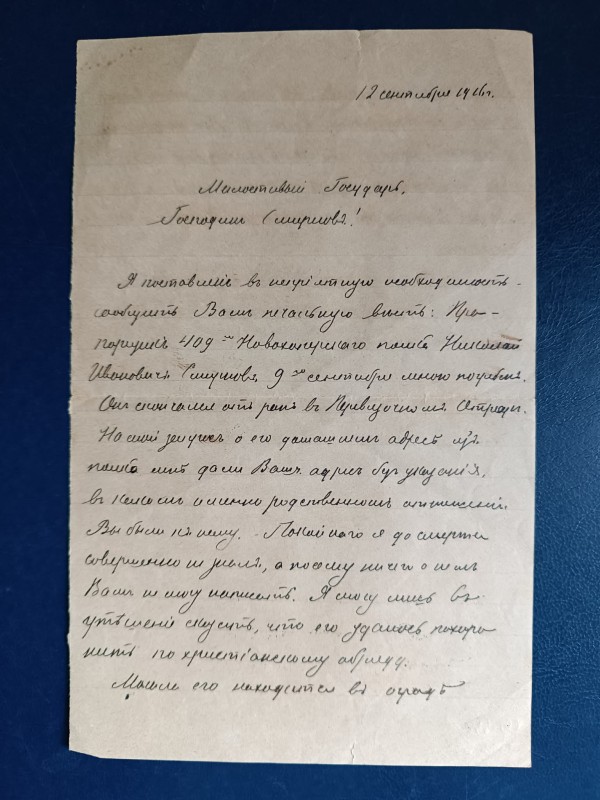 12 сентября 1916г.
Милостивый Государь,
Господинъ Смирновъ!
Я поставленъ въ непріятную необходимость
сообщить Вамъ печальную вѣсть: Пра-
порщикъ 409го Новохоперскаго полка Николай
Ивановичъ Смирновъ 9го сентября мною погребенъ.
Онъ скончался отъ ранъ въ Перевязочномъ Отрядѣ.
На мой запросъ о его домашнемъ адресѣ изъ
полка мнѣ дали Вашъ адресъ безъ указанія,
въ какомъ именно родственномъ отношеніи
Вы были къ нему. Покойнаго я до смерти
совершенно не зналъ, а поэтому ничего о немъ
Вамъ не могу написать. Я могу лишь въ
утѣшеніе сказать, что его удалось похоро
нить по христіанскому обряду.
Могила его находится въ оградѣ